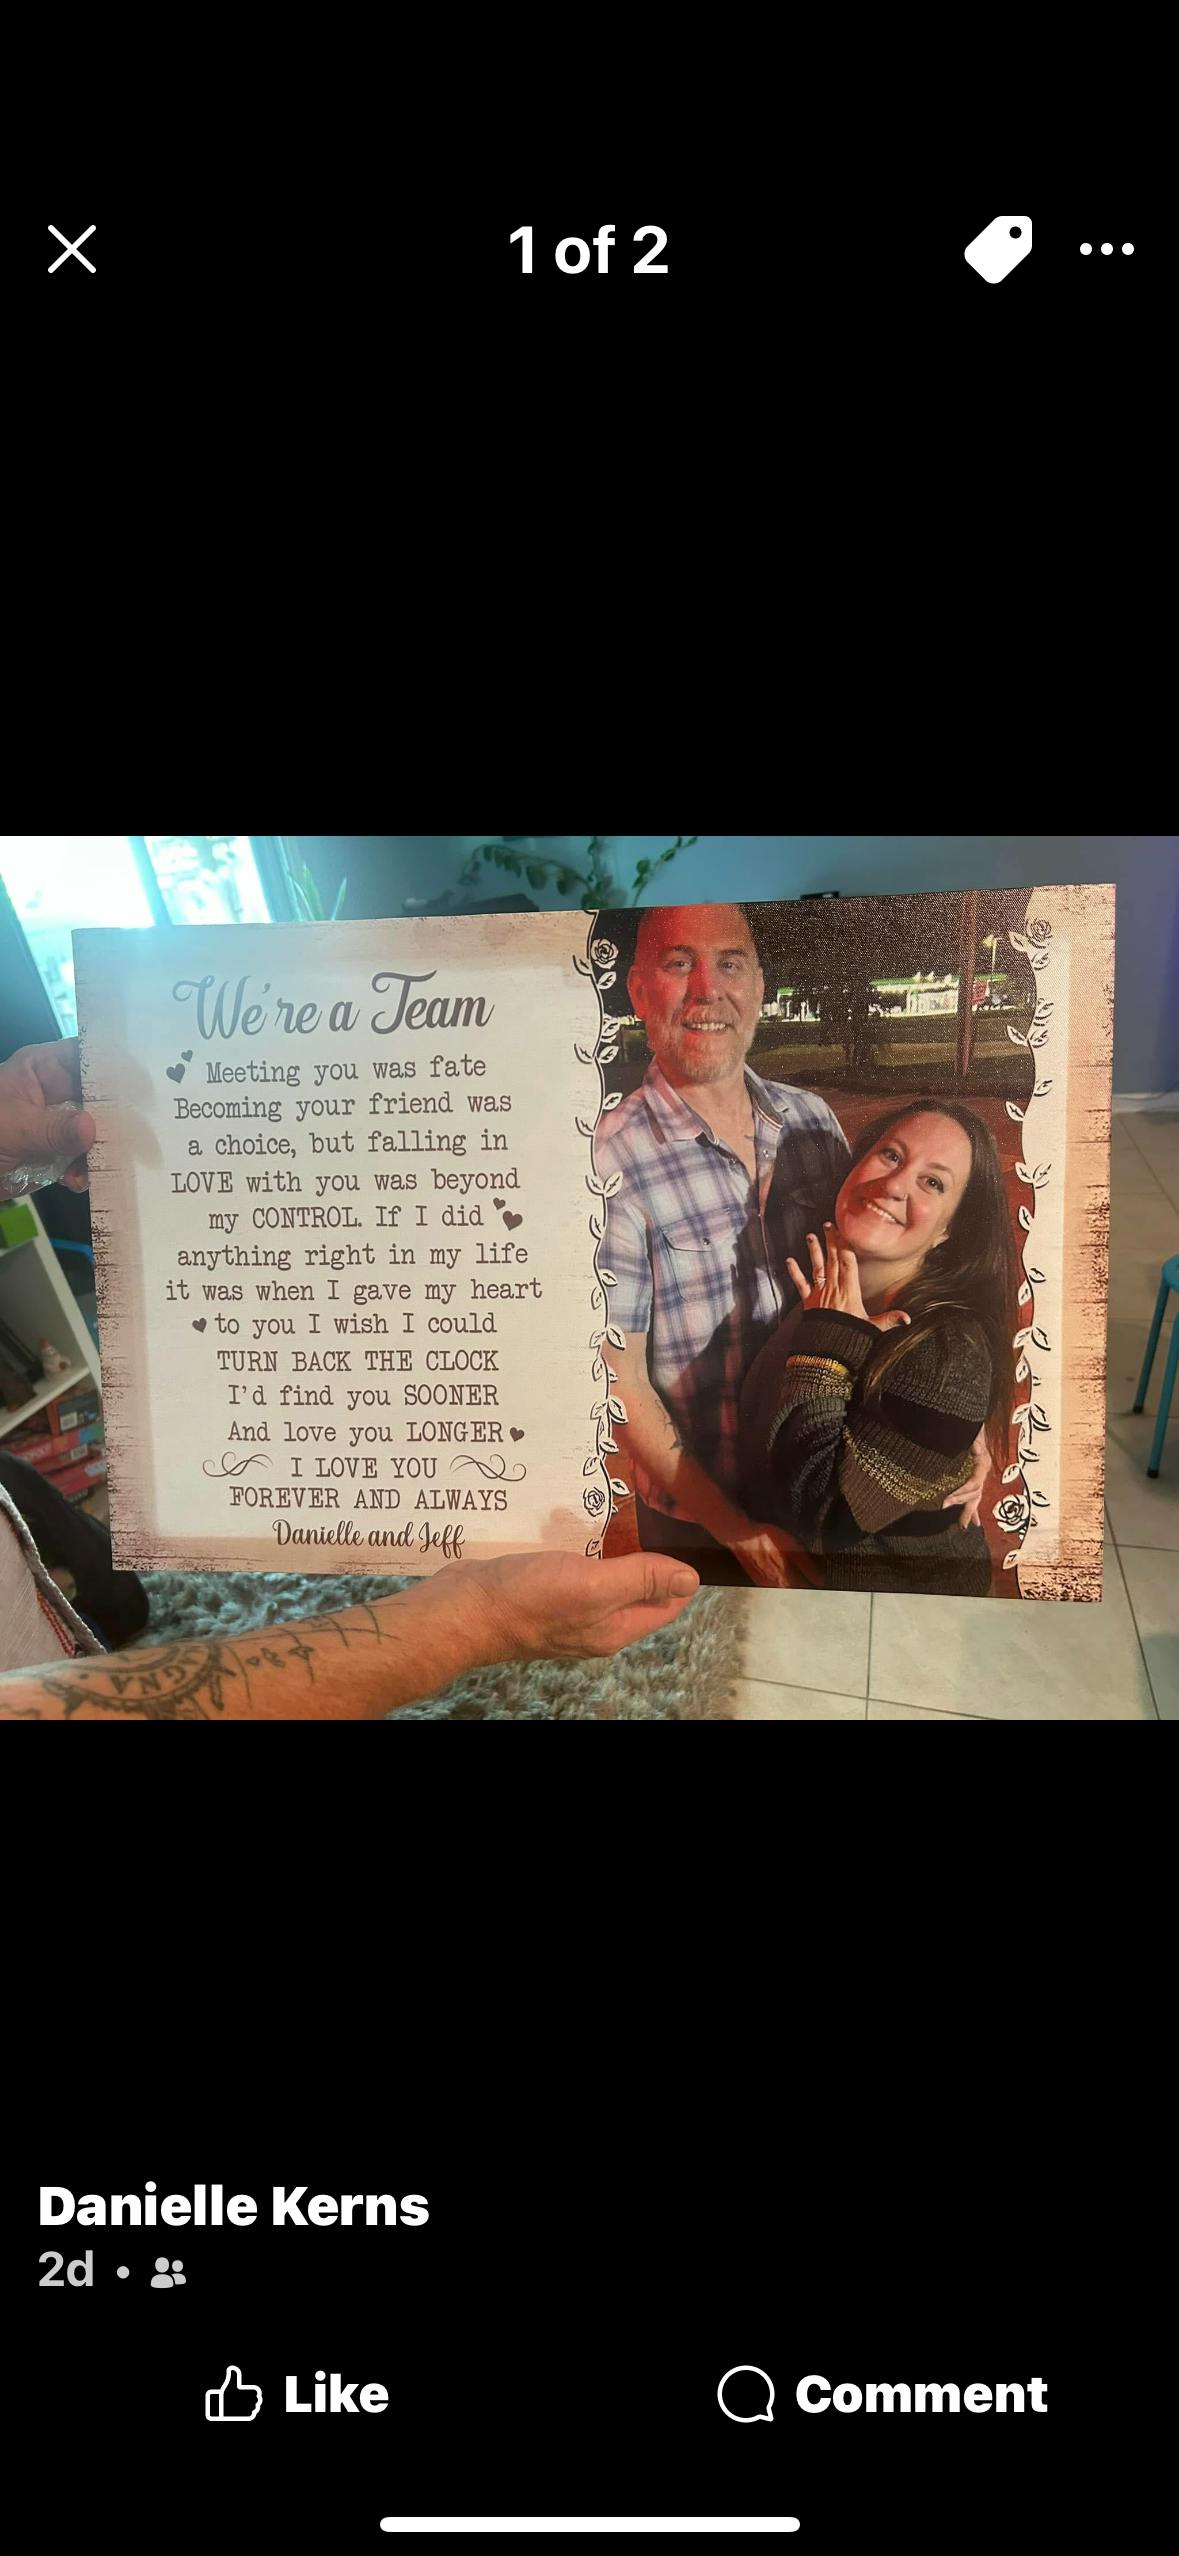 1 of 2
We're a Team
Meeting you was fate
Becoming your friend was
a choice, but falling in
LOVE with you was beyond
my CONTROL. If I did
anything right in my life
it was when I gave my heart
to you I wish I could
TURN BACK THE CLOCK
I'd find you SOONER
And love you LONGER
I LOVE YOU
FOREVER AND ALWAYS
Danielle and Jeff
Danielle Kerns
2d •
Like
Comment